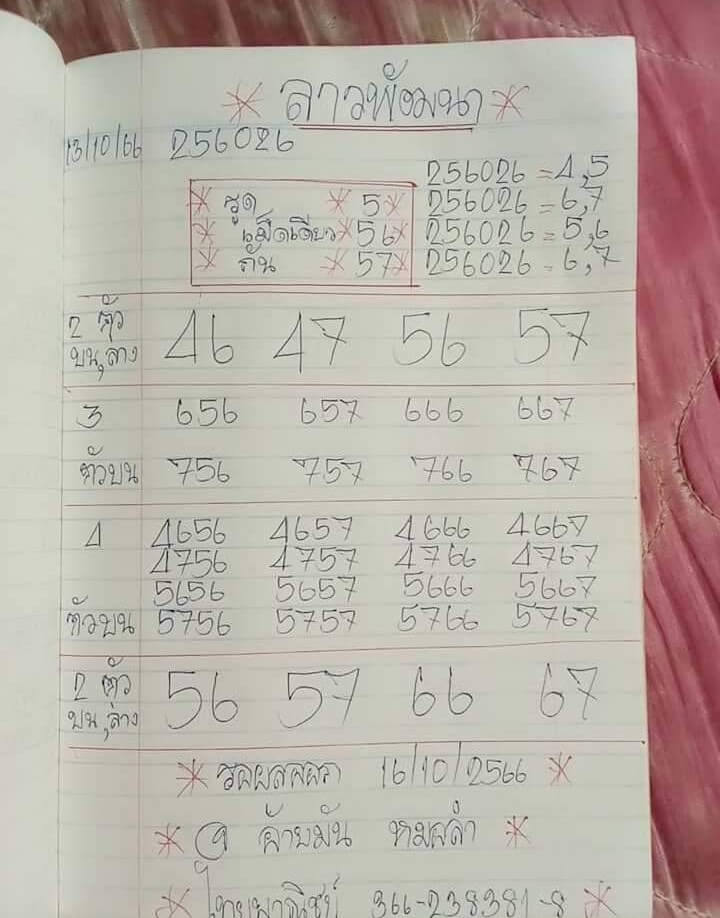 * ลาวพัฒนา *
13/10/66 256026
256026 = 4,5
* รูด * 5 * 256026 = 6,7
* เม็ดเดียว * 56 * 256026 = 5,6
* * 57 * 256026 = 6,7
2 ตัว บน,ล่าง 46 47 56 57
3 656 657 666 667
ตัวบน 756 757 766 767
4 4656 4657 4666 4667
4756 4757 4766 4767
5656 5657 5666 5667
ตัวบน 5756 5757 5766 5767
2 ตัว บน,ล่าง 56 57 66 67
* 16/10/2566 *
* หมอลำ *
* ไทยพาณิชย์ 366-238381-8 *